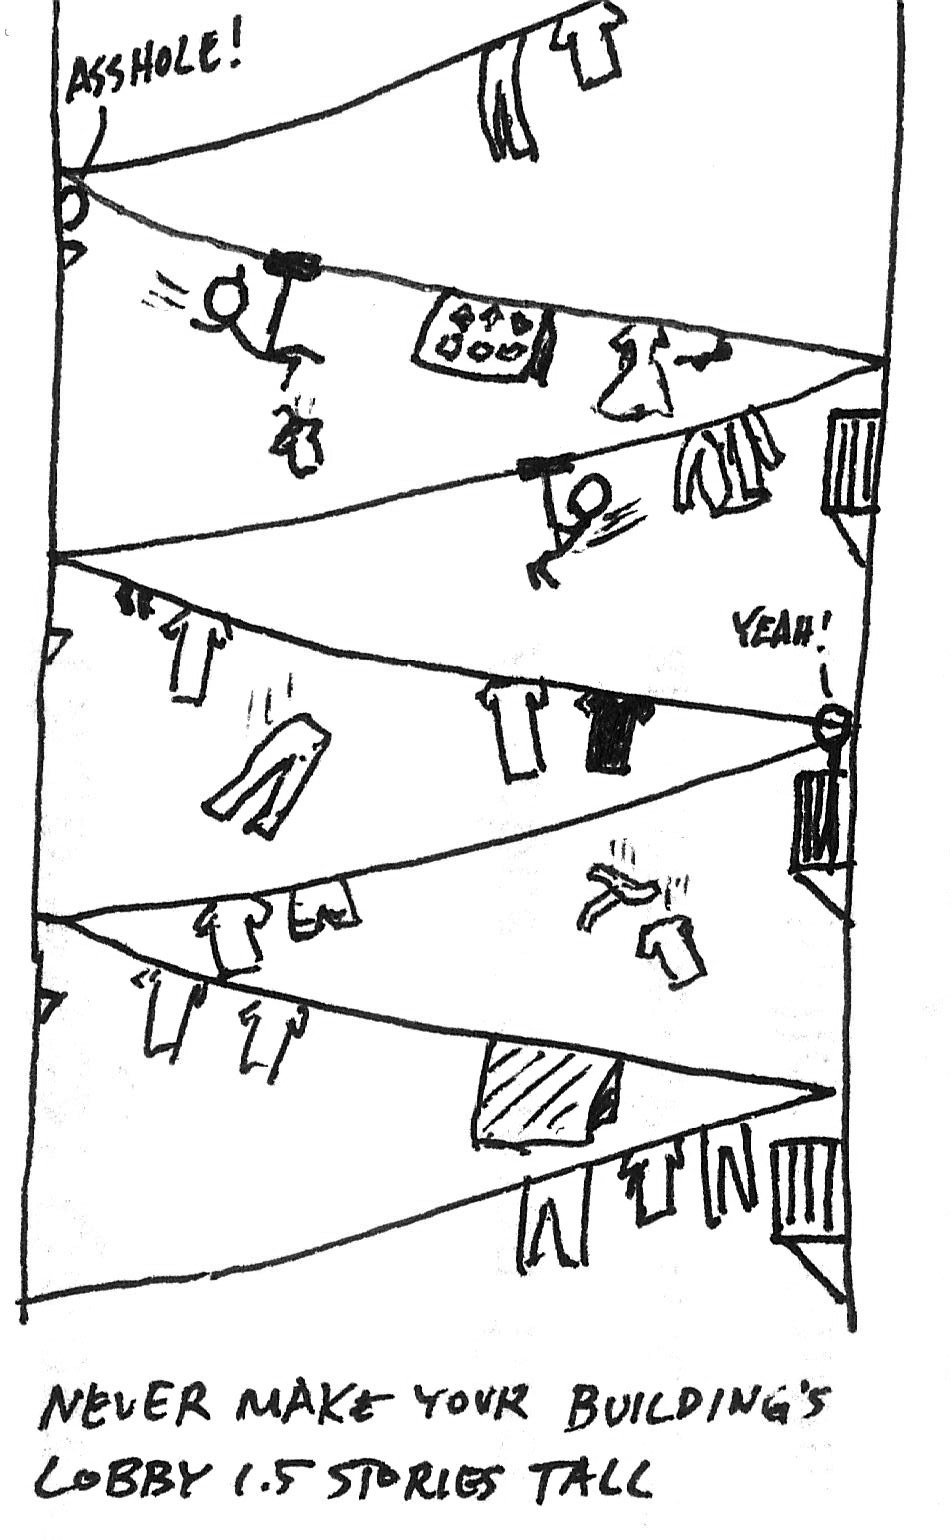 ASSHOLE!
YEAH!
NEVER MAKE YOUR BUILDING'S
LOBBY 1.5 STORIES TALL